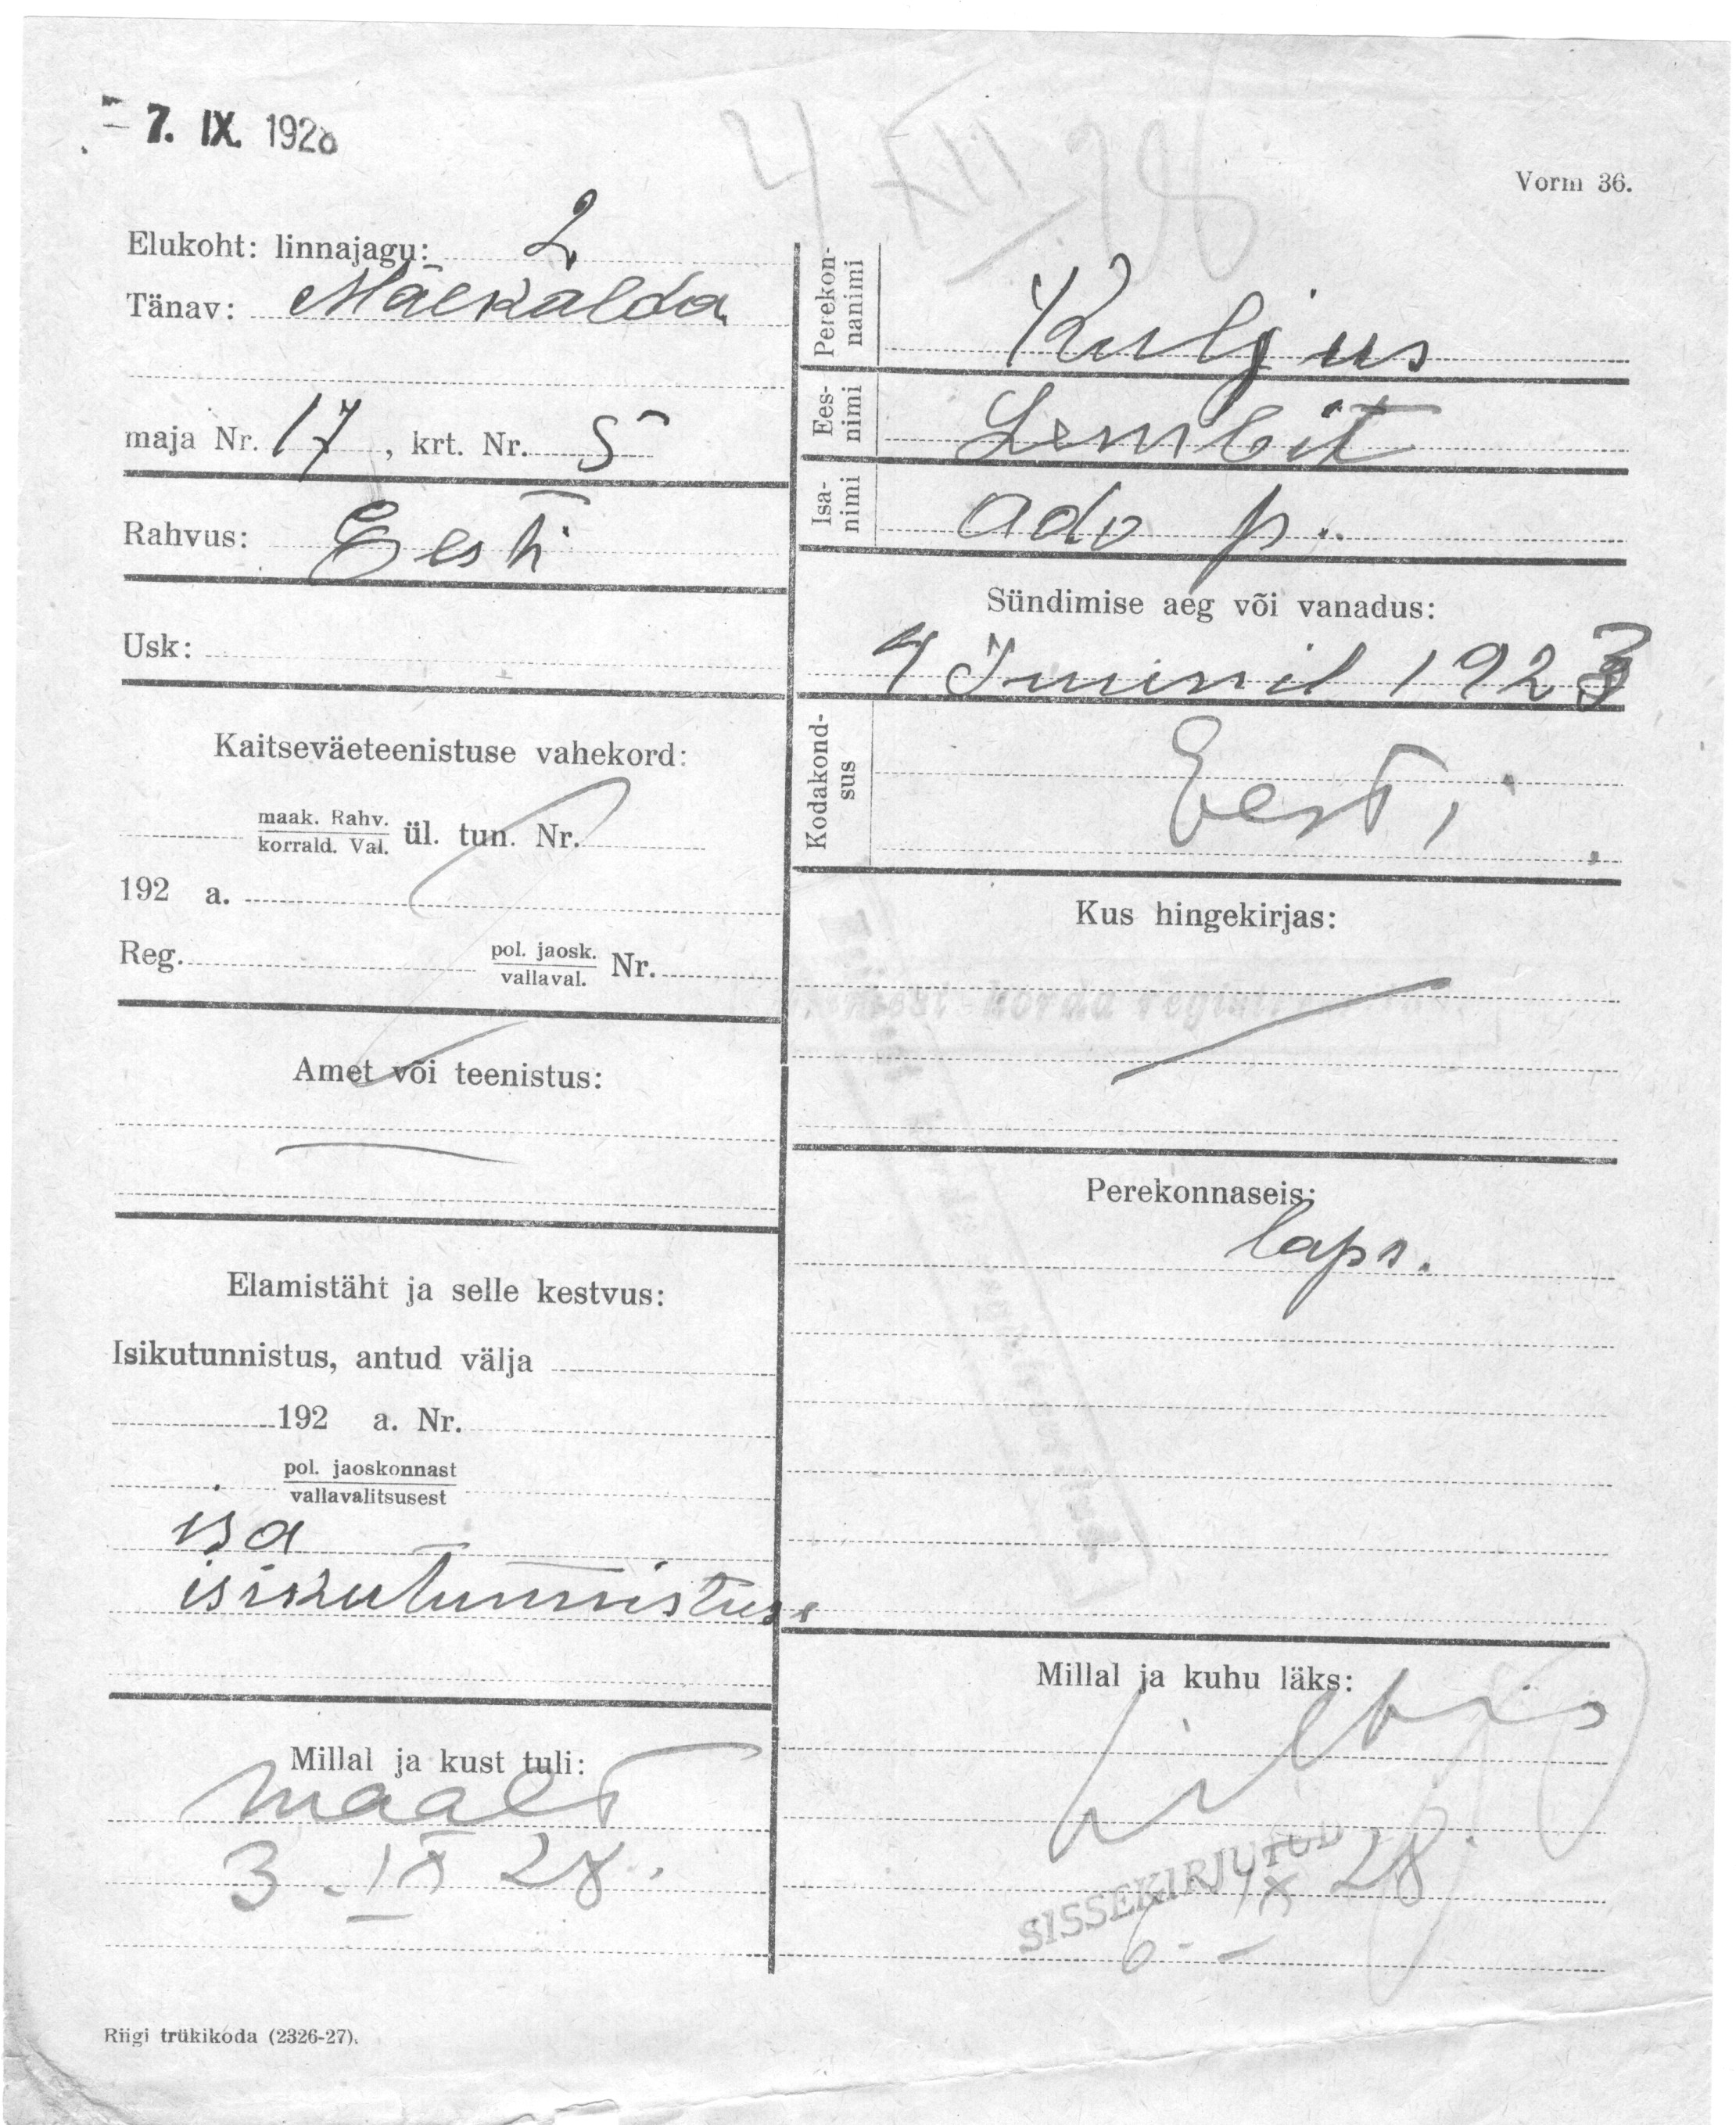 7. IX. 1928
4 XII 28
Vorm 36.
Elukoht: linnajagu: 2
Tänav: Mäekalda
maja Nr. 17, krt. Nr. 5
Rahvus: Eesti
Usk:
Kaitseväeteenistuse vahekord:
maak. Rahv.
korrald. Val. ül. tun. Nr.
192 a.
Reg. pol. jaosk.
vallaval. Nr.
Amet või teenistus:
Elamistäht ja selle kestvus:
Isikutunnistus, antud välja
192 a. Nr.
pol. jaoskonnast
vallavalitsusest
isa
isikutunnistuse
Millal ja kust tuli:
maalt
3. IX 28.
Perekon-
nanimi
Kuljus
Ees-
nimi
Lembit
Isa-
nimi
Ado p.
Sündimise aeg või vanadus:
4 Juunil 1923
Kodakond-
sus
Eesti
Kus hingekirjas:
Perekonnaseis:
laps.
Millal ja kuhu läks:
SISSEKIRJUTUD
6. IX 28.
Riigi trükikoda (2326-27).